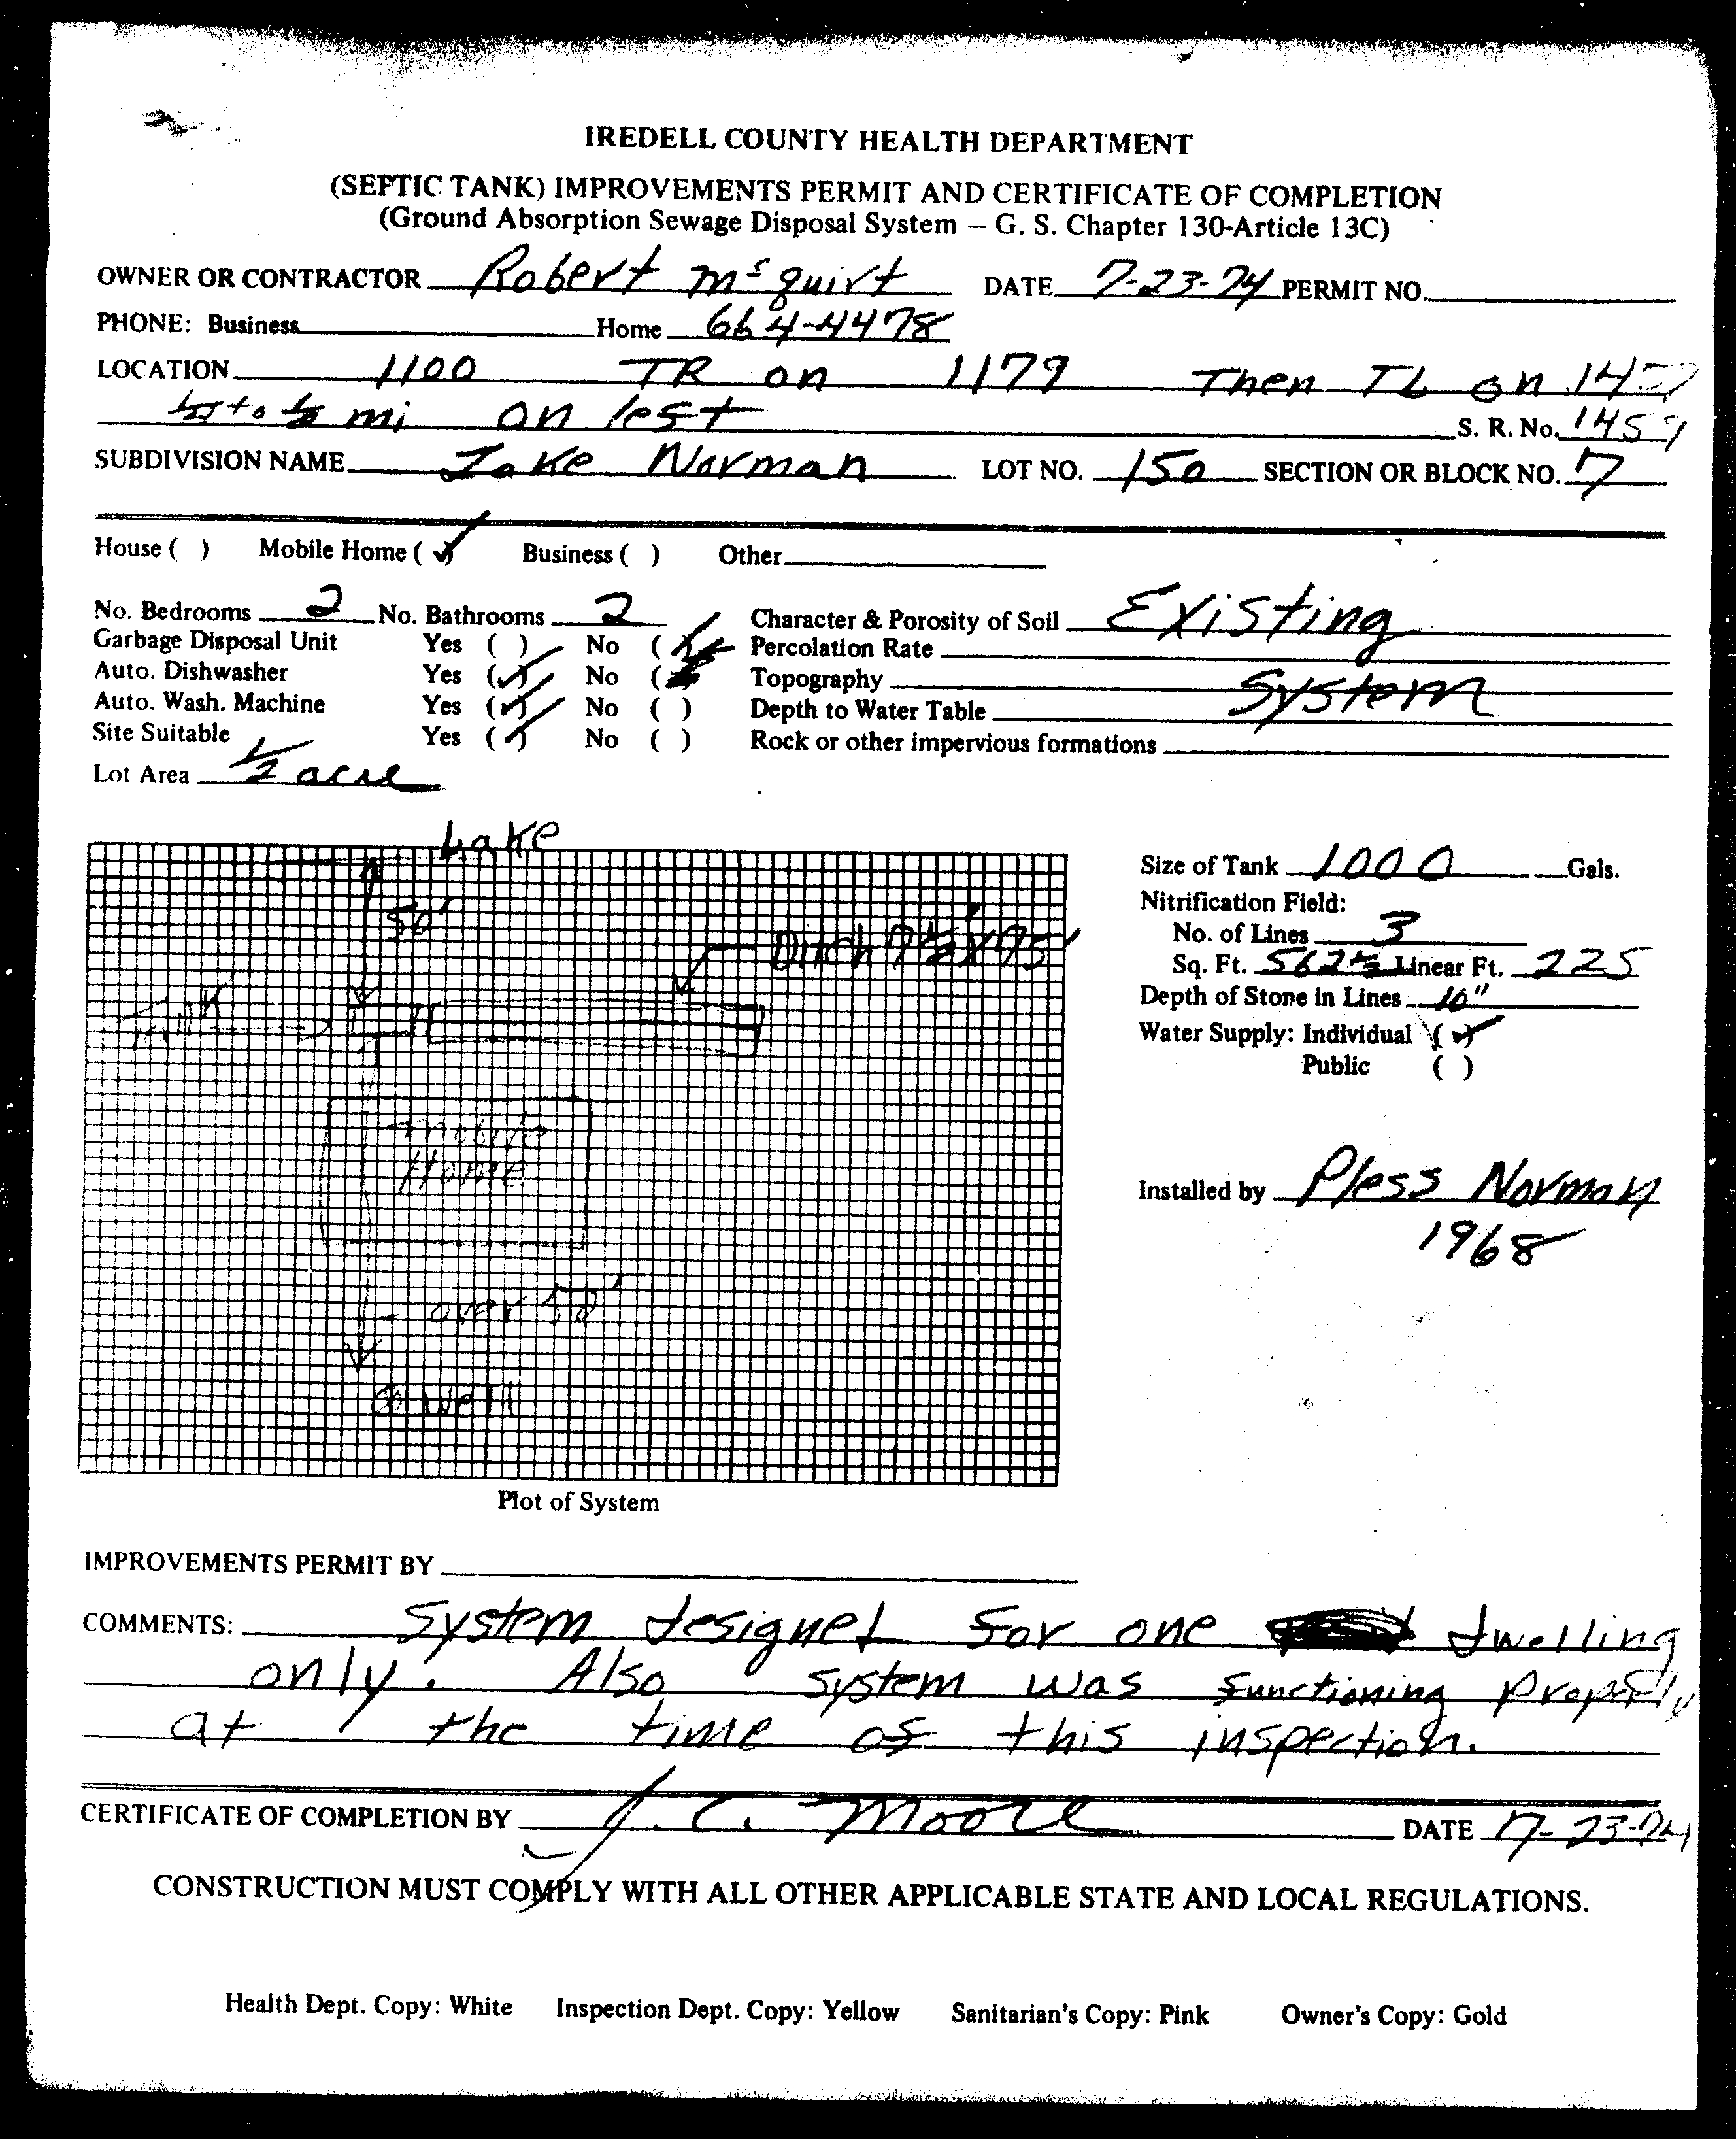 IREDELL COUNTY HEALTH DEPARTMENT
(SEPTIC TANK) IMPROVEMENTS PERMIT AND CERTIFICATE OF COMPLETION
(Ground Absorption Sewage Disposal System – G. S. Chapter 130-Article 13C)
OWNER OR CONTRACTOR Robert McQuirt DATE 7-23-74 PERMIT NO.
PHONE: Business Home 664-4478
LOCATION 1100 TR on 1179 Then TL on
to mi on left S. R. No. 1459
SUBDIVISION NAME Lake Norman LOT NO. 150 SECTION OR BLOCK NO. 7
House ( ) Mobile Home (✓) Business ( ) Other
No. Bedrooms 2 No. Bathrooms 2 Character & Porosity of Soil Existing
Garbage Disposal Unit Yes ( ) No (✓) Percolation Rate
Auto. Dishwasher Yes (✓) No ( ) Topography System
Auto. Wash. Machine Yes (✓) No ( ) Depth to Water Table
Site Suitable Yes (✓) No ( ) Rock or other impervious formations
Lot Area 1/2 acre
Lake
50'
Ditch 7 1/2 X 75'
Tank
mobile
Home
over 50'
well
Plot of System
Size of Tank 1000 Gals.
Nitrification Field:
No. of Lines 3
Sq. Ft. 562 1/2 Linear Ft. 225
Depth of Stone in Lines 10"
Water Supply: Individual (✓)
Public ( )
Installed by Pless Norman
1968
IMPROVEMENTS PERMIT BY
COMMENTS: System designed for one dwelling
only. Also system was functioning properly
at the time of this inspection.
CERTIFICATE OF COMPLETION BY J. C. Moore DATE 7-23-74
CONSTRUCTION MUST COMPLY WITH ALL OTHER APPLICABLE STATE AND LOCAL REGULATIONS.
Health Dept. Copy: White Inspection Dept. Copy: Yellow Sanitarian's Copy: Pink Owner's Copy: Gold